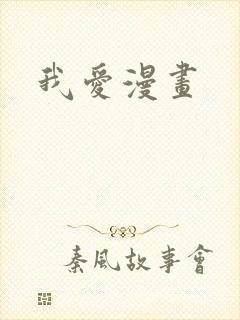 我愛漫畫
秦風故事會